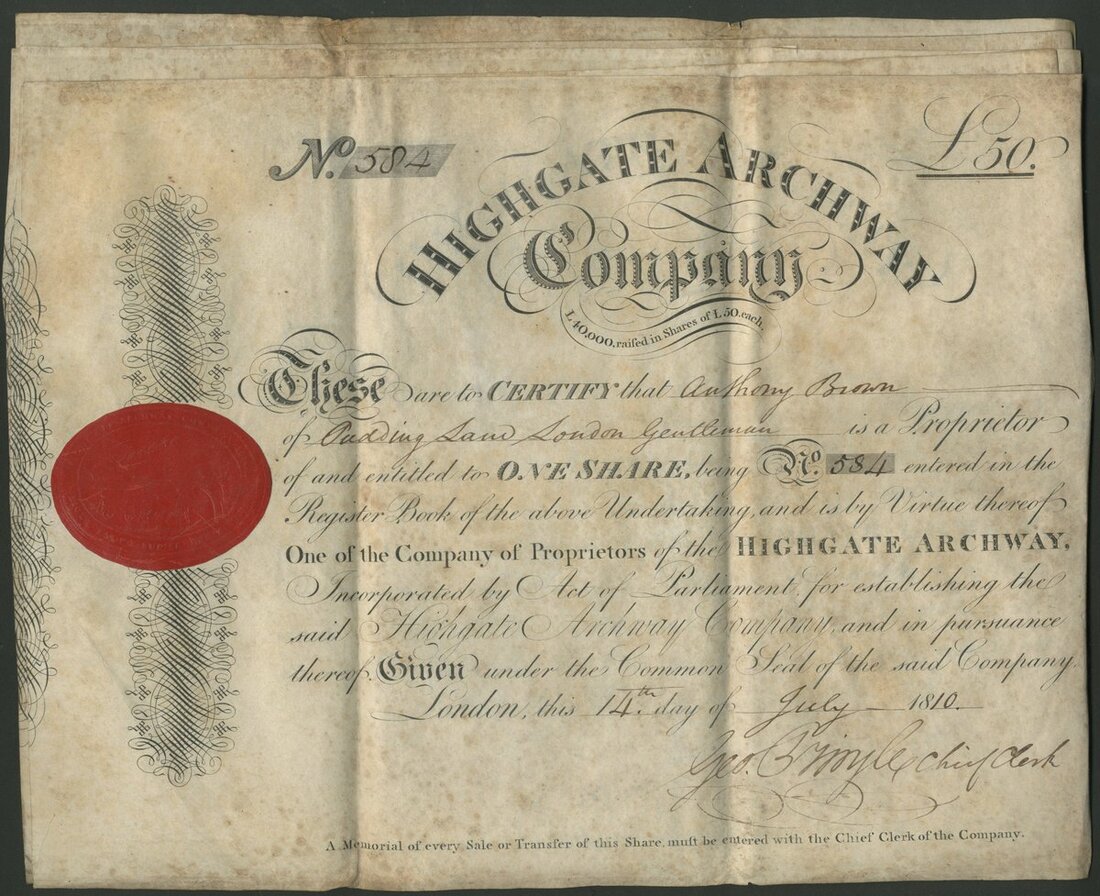 No. 584
£50.
HIGHGATE ARCHWAY
Company
£40,000, raiſed in Shares of £50. each.
These are to CERTIFY that Anthony Brown
of Pudding Lane London Gentleman is a Proprietor
of and entitled to ONE SHARE, being No. 584 entered in the
Register Book of the above Undertaking, and is by Virtue thereof
One of the Company of Proprietors of the HIGHGATE ARCHWAY,
Incorporated by Act of Parliament, for establishing the
said Highgate Archway Company, and in pursuance
thereof, Given under the Common Seal of the said Company.
London, this 14th. day of July 1810.
Geo. chief clerk
A Memorial of every Sale or Transfer of this Share, muſt be entered with the Chief Clerk of the Company.